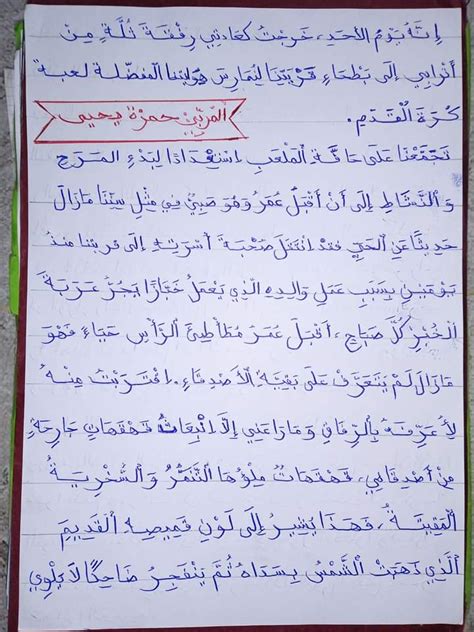 إِنَّهُ يَوْمُ الأَحَدِ، خَرَجْتُ كَعَادَتِي رِفْقَةَ ثُلَّةٍ مِنْ
أَتْرَابِي إِلَى بَطْحَاءِ قَرْيَتِنَا لِنُمَارِسَ هِوَايَتَنَا الْمُفَضَّلَة لُعبة
كُرَةَ الْقَدَمِ.
الْمُرَبِّي حمزة يحيى
تَجَمَّعْنَا عَلَى حَافَّةِ الْمَلْعَبِ اسْتِعْدَادًا لِبَدْءِ الْمَرَحِ
وَ النَّشَاطِ إِلَى أَنْ أَقْبَلَ عُمَرُ وَهُوَ صَبِيٌّ فِي مِثْلِ سِنِّنَا مَازَالَ
حَدِيثًا عَنِ الْحَيِّ فَقَدْ انْتَقَلَ صُحْبَةَ أُسْرَتِهِ إِلَى قريتنا منذُ
يَوْمَيْنِ بِسَبَبِ عَمَلِ وَالِدِهِ الَّذِي يَعْمَلُ خَبَّازًا يَجُرُّ عَرَبَةَ
الْخُبْزِ كُلَّ صَبَاحٍ، أَقْبَلَ عُمَرُ مُطَأْطِئَ الرَّأْسِ حَيَاءً فَهُوَ
مَازَالَ لَمْ يَتَعَرَّفْ عَلَى بَقِيَّةِ الأَصْدِقَاءِ. اقْتَرَبْتُ مِنْهُ
لِأُعَرِّفَهُ بِالرِّفَاقِ وَمَا رَاعَنِي إِلَّا انْبِعَاثُ قَهْقَهَاتٍ جَارِحَةٍ
مِنْ أَصْدِقَائِي، قَهْقَهَاتٌ مِلْؤُهَا التَّنَمُّرُ وَ السُّخْرِيَةُ
الْمَقِيتَةُ، فَهَذَا يُشِيرُ إِلَى لَوْنِ قَمِيصِهِ الْقَدِيمِ
الَّذِي ذَهَبَتْ الشَّمْسُ بِسَدَاهُ ثُمَّ يَنْفَجِرُ ضَاحِكًا لَا يَلْوِي